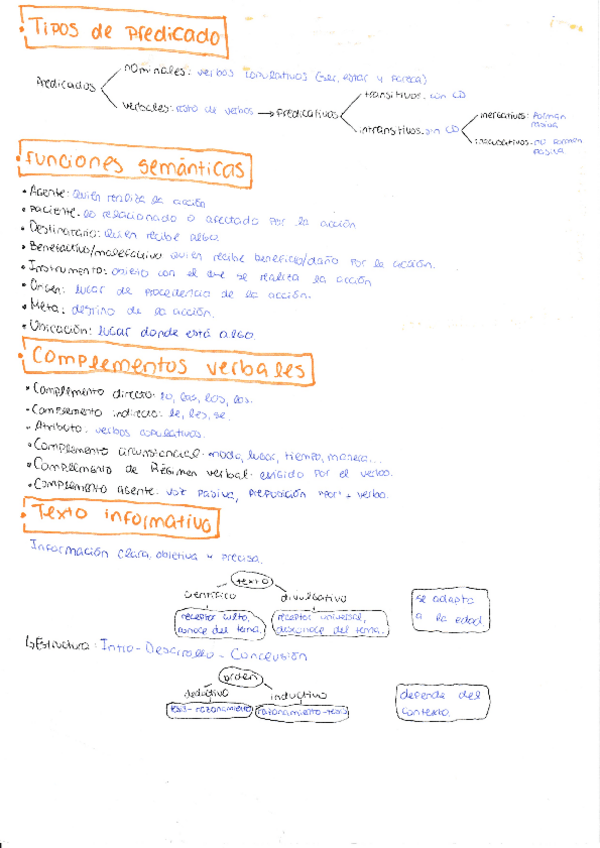 Tipos de predicado
Predicados
nominales: verbos copulativos (ser, estar y parecer)
verbales: resto de verbos → Predicativos
transitivos: con CD
intransitivos: sin CD
inergativos: forman pasiva
inacusativos: no forman pasiva
funciones semánticas
• Agente: Quien realiza la acción
• Paciente: lo relacionado o afectado por la acción
• Destinatario: Quien recibe algo.
• Benefactivo/malefactivo quien recibe beneficio/daño por la acción.
• Instrumento: objeto con el que se realiza la acción
• Origen: lugar de procedencia de la acción.
• Meta: destino de la acción.
• Ubicación: lugar donde está algo.
Complementos verbales
• Complemento directo: lo, las, los, las.
• Complemento indirecto: le, les, se.
• Atributo: verbos copulativos.
• Complemento circunstancial: modo, lugar, tiempo, manera...
• Complemento de Régimen verbal: exigido por el verbo.
• Complemento agente: voz pasiva, preposición "por" + verbo.
Texto informativo
Información clara, objetiva y precisa.
texto
científico
divulgativo
receptor culto, conoce del tema.
receptor universal, desconoce del tema.
se adapta a la edad
↳ Estructura: Intro - Desarrollo - Conclusión
orden
deductivo
inductivo
tesis - razonamiento
razonamiento - tesis
depende del contexto.